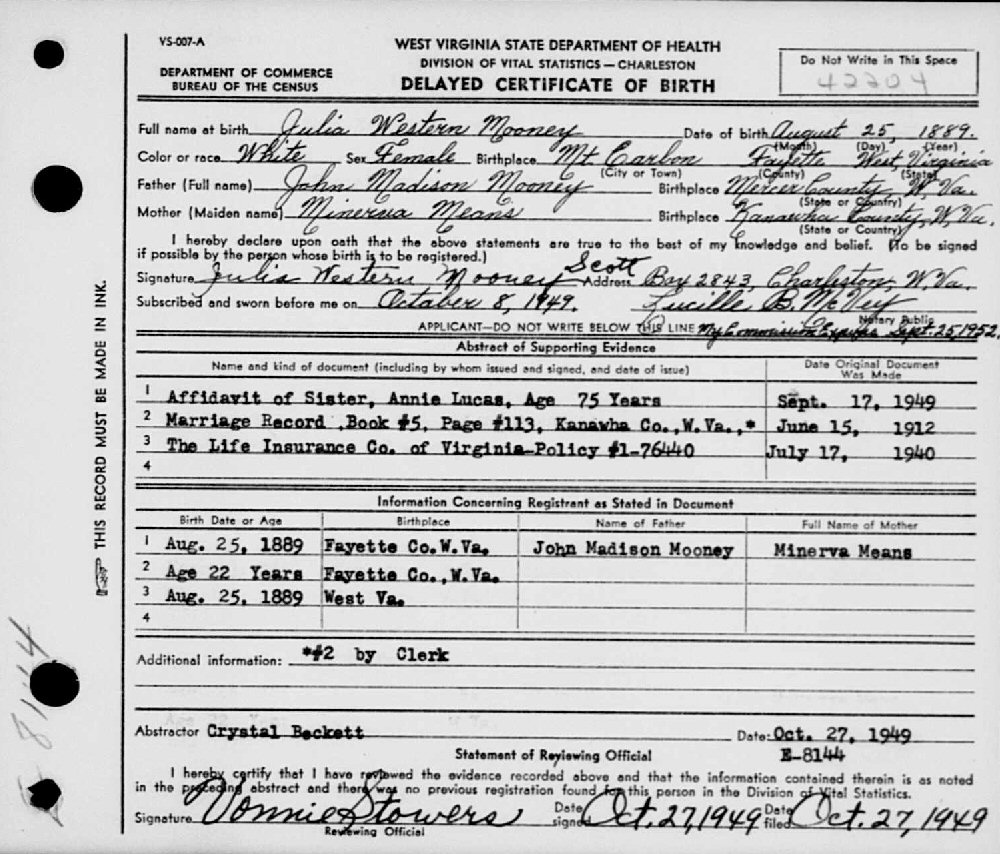 VS-007-A
WEST VIRGINIA STATE DEPARTMENT OF HEALTH
DIVISION OF VITAL STATISTICS—CHARLESTON
DEPARTMENT OF COMMERCE
BUREAU OF THE CENSUS
DELAYED CERTIFICATE OF BIRTH
Do Not Write in This Space
42204
Full name at birth Julia Western Mooney Date of birth August 25, 1889.
(Month) (Day) (Year)
Color or race White Sex Female Birthplace Mt Carbon Fayette West, Virginia
(City or Town) (County) (State)
Father (Full name) John Madison Mooney Birthplace Mercer County, W. Va.
(State or Country)
Mother (Maiden name) Minerva Means Birthplace Kanawha County, W. Va.
(State or Country)
I hereby declare upon oath that the above statements are true to the best of my knowledge and belief. (To be signed
if possible by the person whose birth is to be registered.)
Signature Julia Western Mooney Scott Address Box 2843, Charleston, W. Va.
Subscribed and sworn before me on October 8, 1949. Lucille B. McVey
Notary Public
APPLICANT—DO NOT WRITE BELOW THIS LINE My Commission Expires Sept. 25, 1952.
Abstract of Supporting Evidence
Name and kind of document (including by whom issued and signed, and date of issue) Date Original Document
Was Made
1 Affidavit of Sister, Annie Lucas, Age 75 Years Sept. 17, 1949
2 Marriage Record ,Book #5, Page #113, Kanawha Co.,W.Va.,* June 15, 1912
3 The Life Insurance Co. of Virginia-Policy #1-76440 July 17, 1940
4
Information Concerning Registrant as Stated in Document
Birth Date or Age Birthplace Name of Father Full Name of Mother
1 Aug. 25, 1889 Fayette Co.W.Va. John Madison Mooney Minerva Means
2 Age 22 Years Fayette Co.,W.Va.
3 Aug. 25, 1889 West Va.
4
Additional information: *#2 by Clerk
Abstractor Crystal Beckett Date: Oct. 27, 1949
E-8144
Statement of Reviewing Official
I hereby certify that I have reviewed the evidence recorded above and that the information contained therein is as noted
in the preceding abstract and there was no previous registration found for this person in the Division of Vital Statistics.
Signature Vonnie Stowers Date signed Oct. 27, 1949 Date filed Oct. 27, 1949
Reviewing Official
THIS RECORD MUST BE MADE IN INK.
E 8144